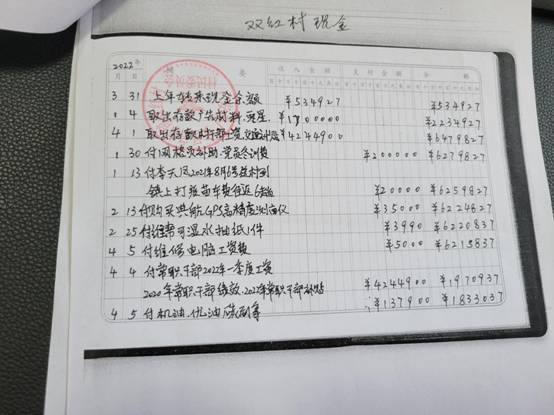 双红村现金
2022年
月 日 摘 要 收入金额 支付金额 余额
3 31 上年结转现金余额 ¥534927 ¥534927
1 4 取出存款 ¥1700000 ¥2234927
4 1 取出存款 ¥4244900 ¥6479827
1 30 付网格员补助、党员冬训费 ¥200000 ¥6279827
1 13 付李天凤2021年8月6号
镇上打疫苗车费 ¥20000 ¥6259827
2 13 付购买 GPS高精度测亩仪 ¥35000 ¥6224827
2 25 付维帮可湿水抽纸1件 ¥3990 ¥6220837
4 5 付维修电脑工资费 ¥5000 ¥6215837
4 4 付常职干部2022年一季度工资
2020年常职干部绩效、2022年常职干部补贴 ¥4244900 ¥1970937
4 5 付机油、优油 ¥137900 ¥1833037